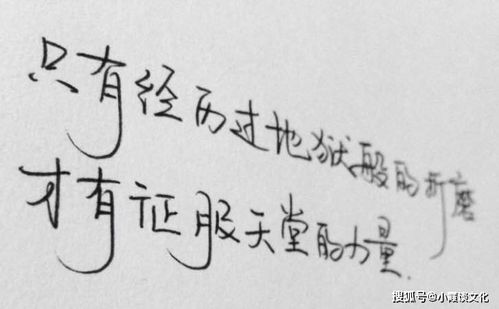 只有经历过地狱般的折磨
才有证服天堂的力量.
搜狐号@小霞谈文化